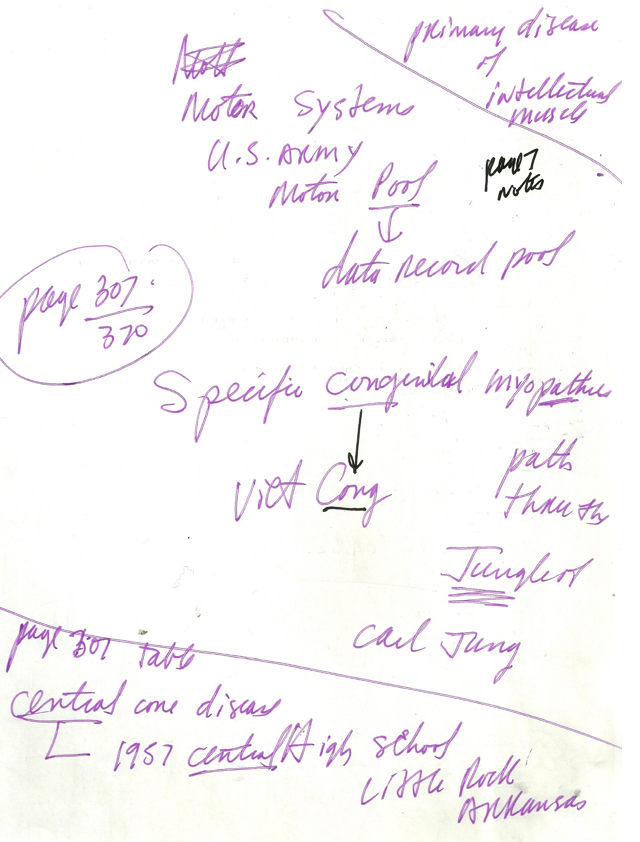 primary disease
of
intellectual
muscle
Motor Systems
U.S. ARMY
Motor Pool
page 7
notes
data record pool
page 307
320
Specific congenital myopathies
Viet Cong
path
thru the
Jungles of
Carl Jung
page 307 table
central core disease
1957 central High School
Little Rock
Arkansas